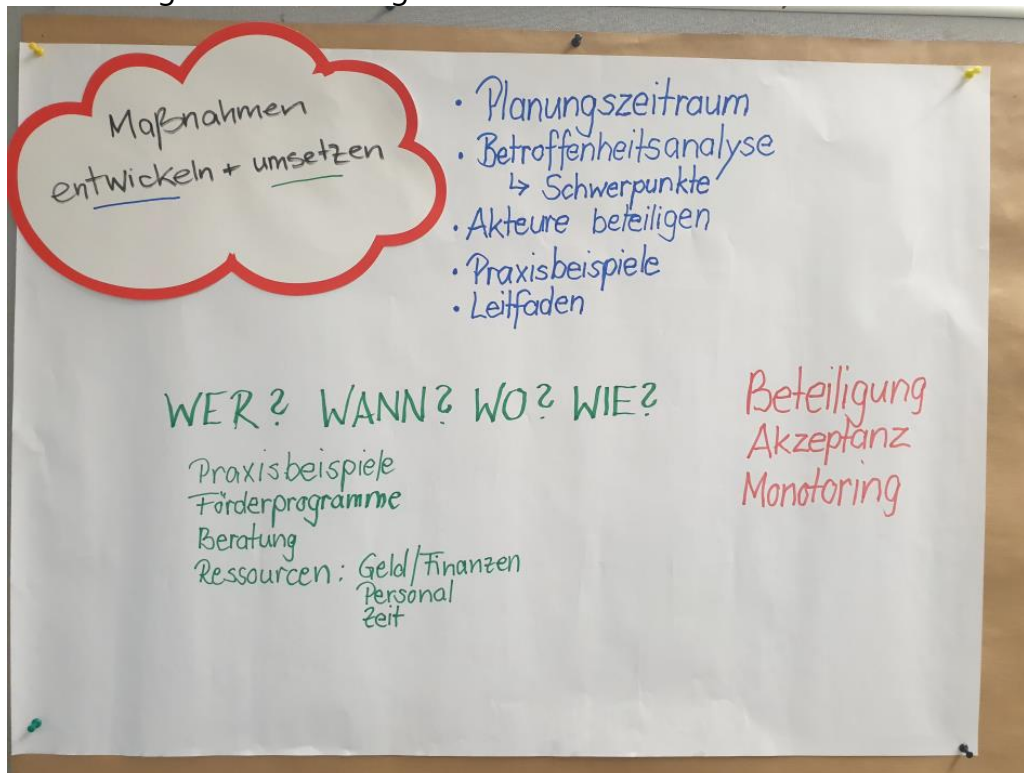 Maßnahmen
entwickeln + umsetzen
· Planungszeitraum
· Betroffenheitsanalyse
↳ Schwerpunkte
· Akteure beteiligen
· Praxisbeispiele
· Leitfaden
WER? WANN? WO? WIE?
Praxisbeispiele
Förderprogramme
Beratung
Ressourcen: Geld/Finanzen
Personal
Zeit
Beteiligung
Akzeptanz
Monotoring